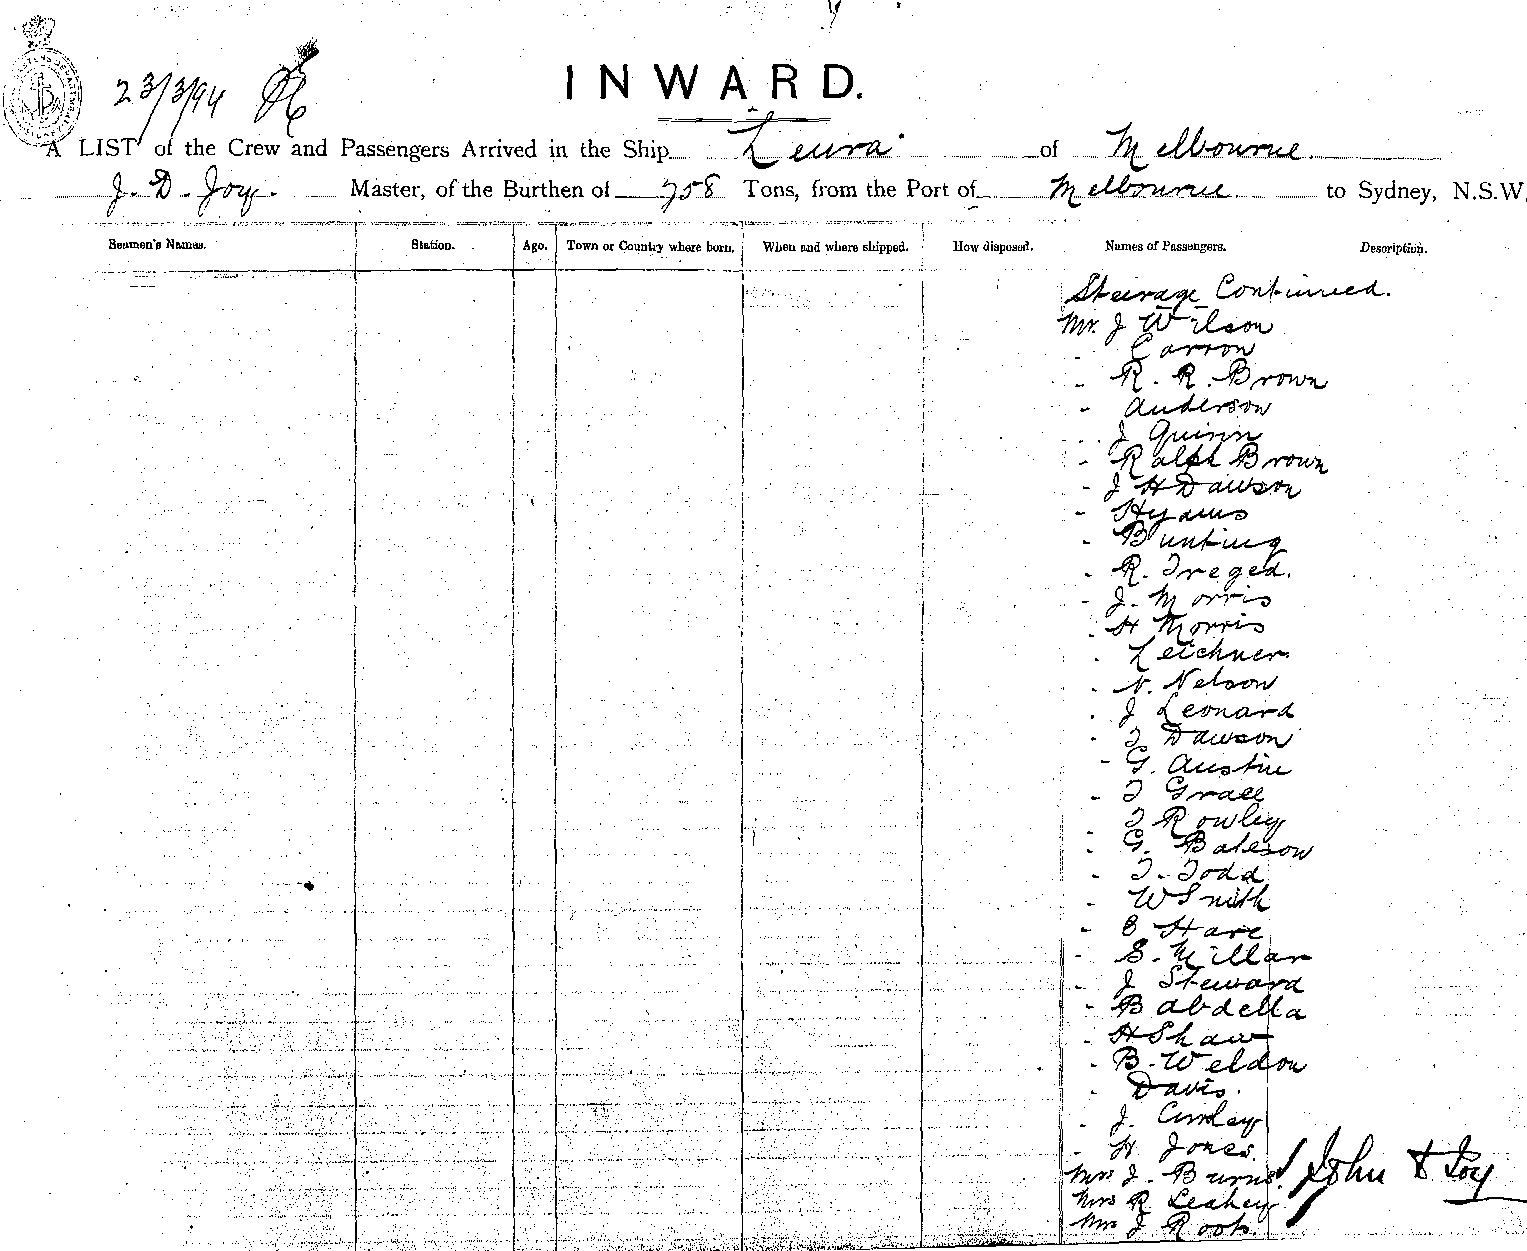 23/3/94
INWARD.
A LIST of the Crew and Passengers Arrived in the Ship Leura of Melbourne
J. D. Joy. Master, of the Burthen of 758 Tons, from the Port of Melbourne to Sydney, N.S.W.
Seamen's Names. Station. Age. Town or Country where born. When and where shipped. How disposed. Names of Passengers. Description.
Steerage Continued.
Mr. J Wilson
" Carron
" R. R. Brown
" Anderson
" J Quinn
" Ralph Brown
" J H Dawson
" Hyams
" Bunting
" R. Treged.
" J. Morris
" H Morris
" Leichner
" N. Nelson
" J Leonard
" T Dawson
" G. Austin
" T Grace
" T Rowley
" G. Bateson
" T. Todd
" W Smith
" Hare
" S. Millar
" J Steward
" B abdella
" H Shaw
" B. Weldon
" Davis.
" J.
" H Jones.
Mrs J. Burns. John D Joy
Mrs R Leahey
Mrs J Rook.